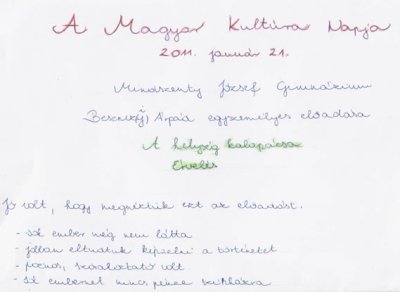 A Magyar Kultúra Napja
2011. január 21.
Mindszenty József Gimnázium
Árpád egyszemélyes előadása
A helység kalapácsa
Elvetés
Jó volt, hogy megnéztük ezt az előadást.
- sok ember még nem látta
- jóllan eltudtuk képzelni a történetet
- poénos, szórakoztató volt
- sok embernek nincs pénze színházra